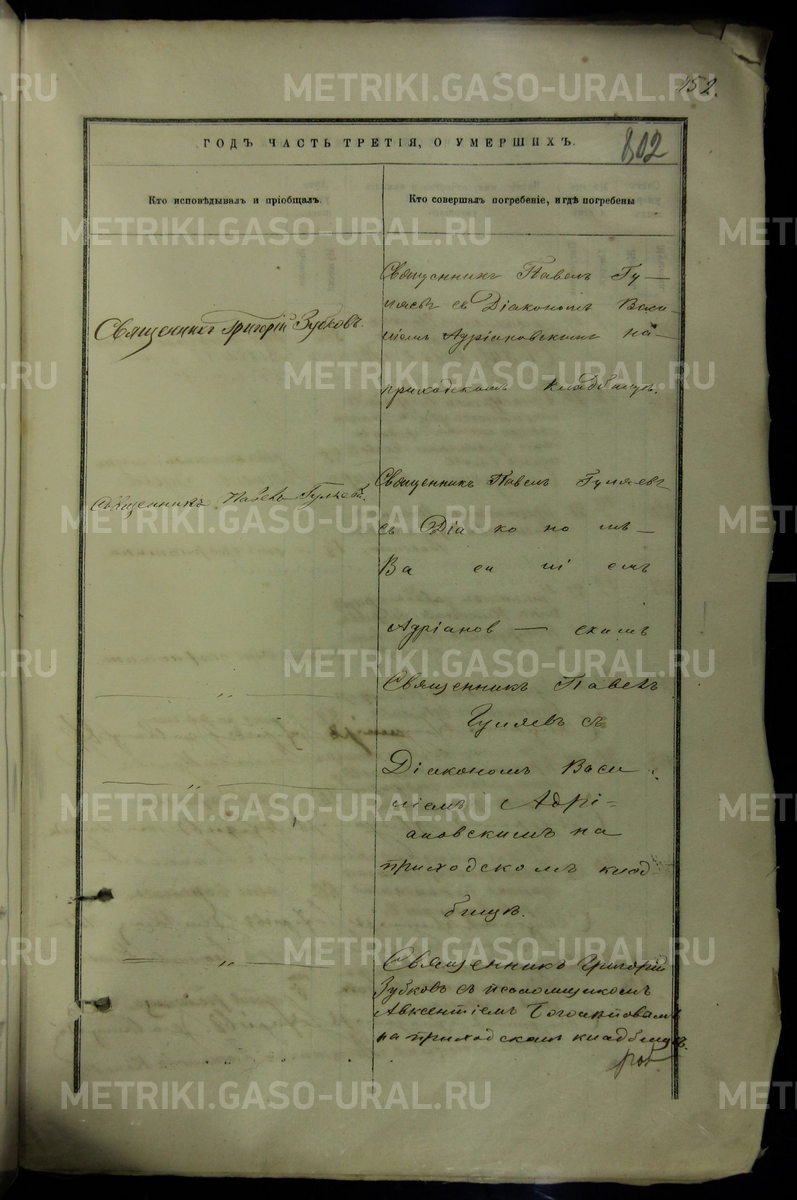 152.
802
ГОДЪ ЧАСТЬ ТРЕТІЯ, О УМЕРШИХЪ.
Кто исповѣдывалъ и пріобщалъ.
Кто совершалъ погребеніе, и гдѣ погребены
Священникъ Григорій Зубковъ.
Священникъ Павелъ Гу—
ляевъ съ Діакономъ Васи-
ліемъ Адріановскимъ на—
приходскомъ кладбищѣ.
Священникъ Павелъ Гуляевъ.
Священникъ Павелъ Гуляевъ
съ Діакономъ—
Василіемъ
Адріанов—скимъ
Священникъ Павелъ
Гуляевъ съ
Діакономъ Васи
ліемъ Адрі=
ановскимъ на
приходскомъ клад
бищѣ.
Священникъ Григорій
Зубковъ съ псаломщикомъ
Авксентіемъ
на приходскомъ кладбищѣ.
METRIKI.GASO-URAL.RU